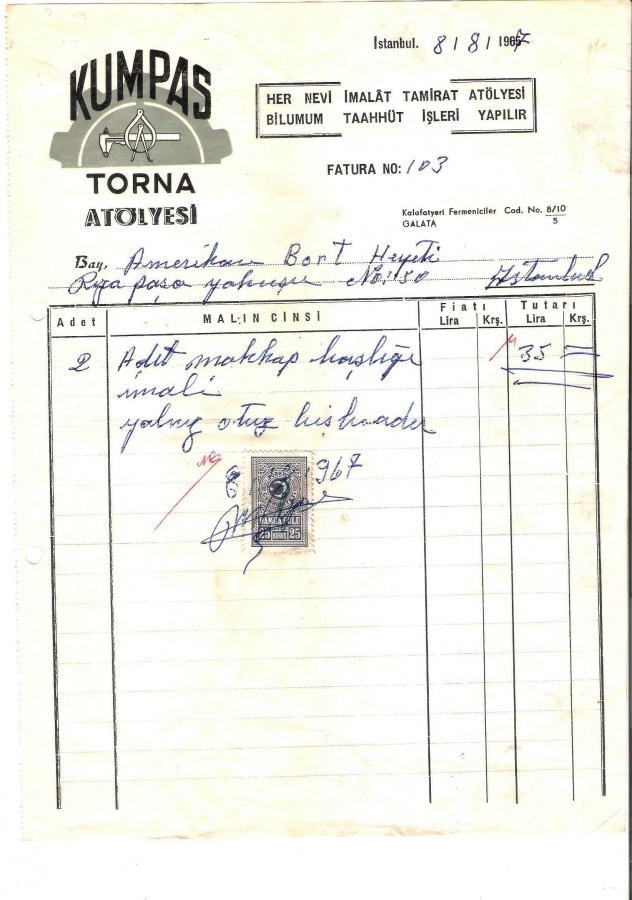 İstanbul. 8 / 8 / 1967
KUMPAS
TORNA
ATÖLYESİ
HER NEVİ İMALÂT TAMİRAT ATÖLYESİ
BİLUMUM TAAHHÜT İŞLERİ YAPILIR
FATURA NO: 103
Kalafatyeri Fermeniciler Cad. No. 8/10
5
GALATA
Bay, Amerikan Bort Heyeti
Rıza paşa yokuşu No: 50 İstanbul
Adet MALIN CİNSİ Fiatı Tutarı
Lira Krş. Lira Krş.
2 Adet makkap başlığı 35 =
imali
yalnız otuz beş liradır
8 1967
DAMGA PULU
25 KURUŞ 25